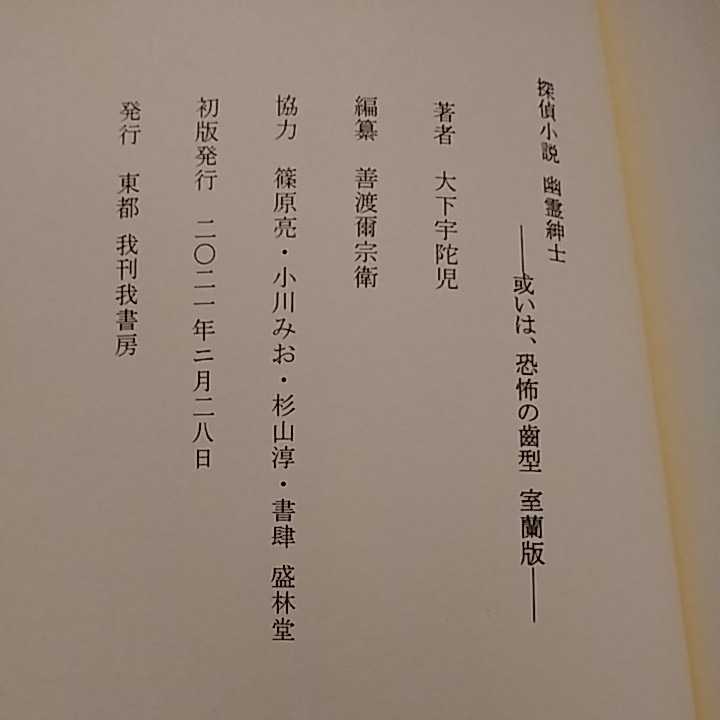 探偵小説 幽霊紳士
――或いは、恐怖の齒型 室蘭版――
著者 大下宇陀児
編纂 善渡爾宗衛
協力 篠原亮・小川みお・杉山淳・書肆 盛林堂
初版発行 二〇二一年二月二八日
発行 東都 我刊我書房